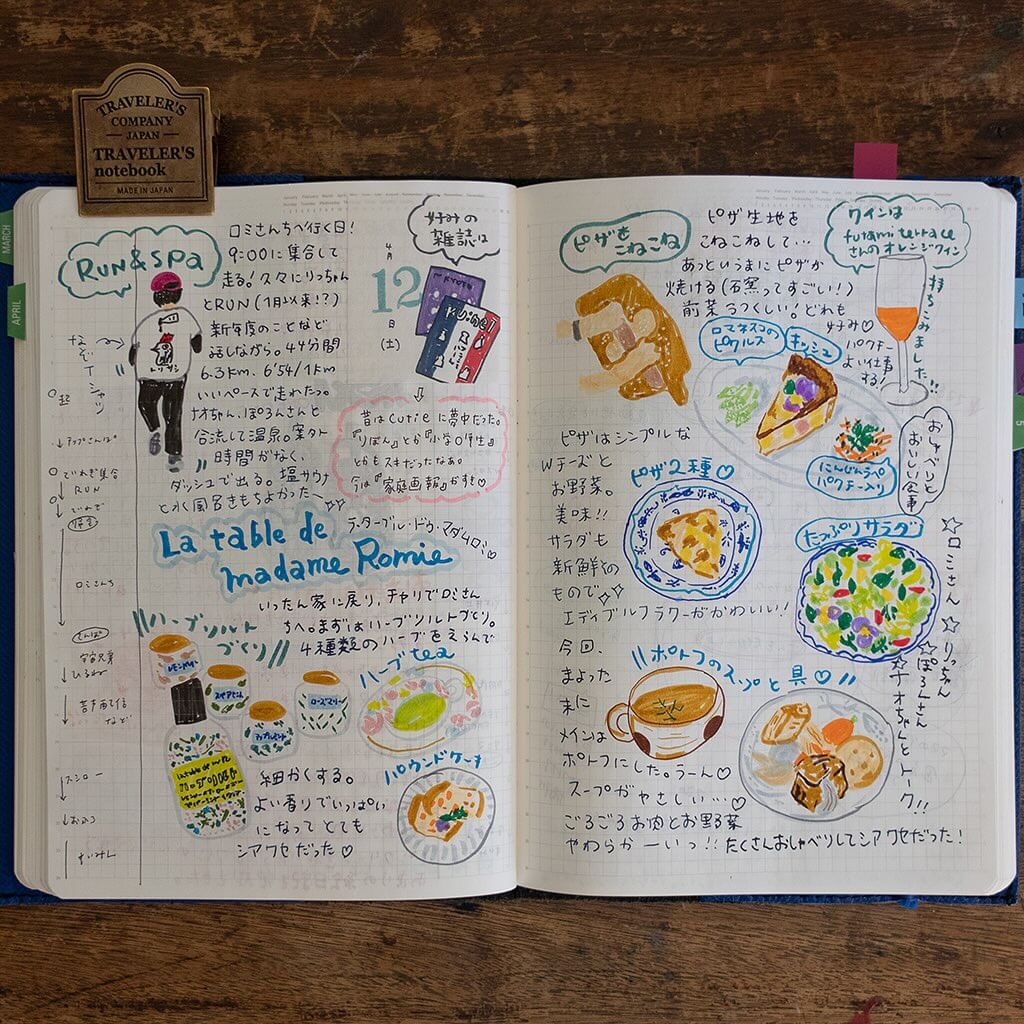 TRAVELER'S
COMPANY
JAPAN
TRAVELER'S
notebook
MADE IN JAPAN
MARCH
APRIL
RUN & SPA
ロミさんちへ行く日!
9:00に集合して
走る!久々にりっちゃん
とRUN(1月以来!?)
新年度のことなど
話しながら。44分間
6.3km、6'54/1km
いいペースで走れたっ。
ナオちゃん、ぽろんさんと
合流して温泉。案外
時間がなく、
ダッシュで出る。塩サウナ
と水風呂きもちよかったー
4月
12
日
(土)
好みの
雑誌は
KYOTO
昔はCutieに夢中だった。
『りぼん』とか『小学〇年生』
とかもスキだったなあ。
今は『家庭画報』がすき♡
なぞTシャツ
トリサン
起
集合
RUN
ロミさんち
ひるね
音声配信
など
La table de
madame Romie
ラ・ターブル・ドゥ・マダムロミ♡
いったん家に戻り、チャリでロミさん
ちへ。まずはハーブソルトづくり。
4種類のハーブをえらんで
ハーブソルト
づくり
ローズマリー
ハーブtea
パウンドケーキ
細かくする。
よい香りでいっぱい
になってとても
シアワセだった♡
ピザを
こねこね
ピザ生地を
こねこねして…
あっというまにピザが
焼ける(石窯ってすごい!)
前菜うつくしい!どれも
好み♡
パクチー
よい仕事
する!
ワインは
futami terrace
さんのオレンジワイン
持ちこみました!!
ロマネスコの
ピクルス
キッシュ
にんじんラペ
パクチー入り
おしゃべりと
おいしい食事
ピザはシンプルな
Wチーズと
お野菜。
美味!!
サラダも
新鮮その
もので
エディブルフラワーがかわいい!
ピザ2種♡
たっぷりサラダ
☆ロミさん ☆りっちゃん
☆ぽろんさん
☆ナオちゃんとトーク!!
今回、
まよった
末に
メインは
ポトフにした。うーん♡
スープがやさしい…♡
ごろごろお肉とお野菜
やわらかーいっ!!たくさんおしゃべりしてシアワセだった!
ポトフのスープと具♡